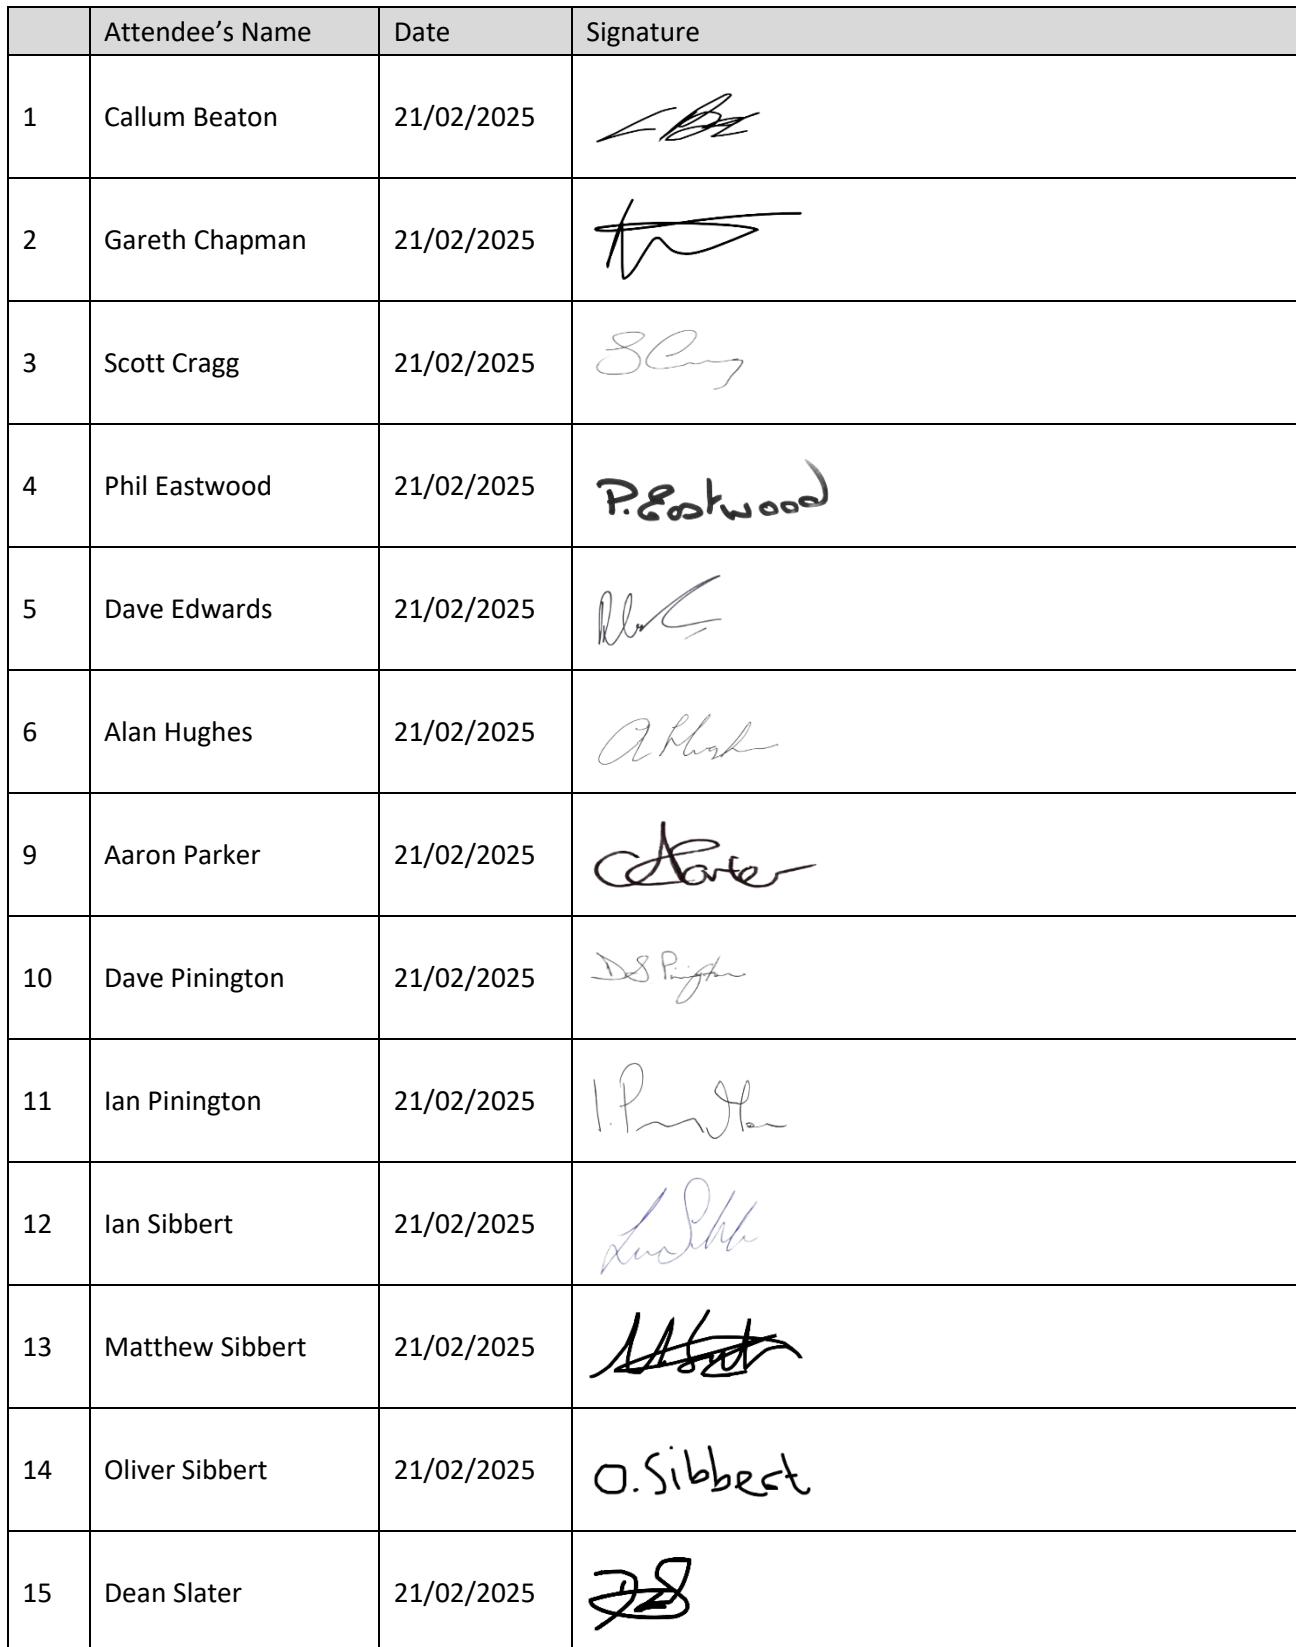 Attendee’s Name Date Signature
1 Callum Beaton 21/02/2025
2 Gareth Chapman 21/02/2025
3 Scott Cragg 21/02/2025
4 Phil Eastwood 21/02/2025 P.Eastwood
5 Dave Edwards 21/02/2025
6 Alan Hughes 21/02/2025
9 Aaron Parker 21/02/2025
10 Dave Pinington 21/02/2025
11 Ian Pinington 21/02/2025
12 Ian Sibbert 21/02/2025
13 Matthew Sibbert 21/02/2025
14 Oliver Sibbert 21/02/2025 O.Sibbert
15 Dean Slater 21/02/2025